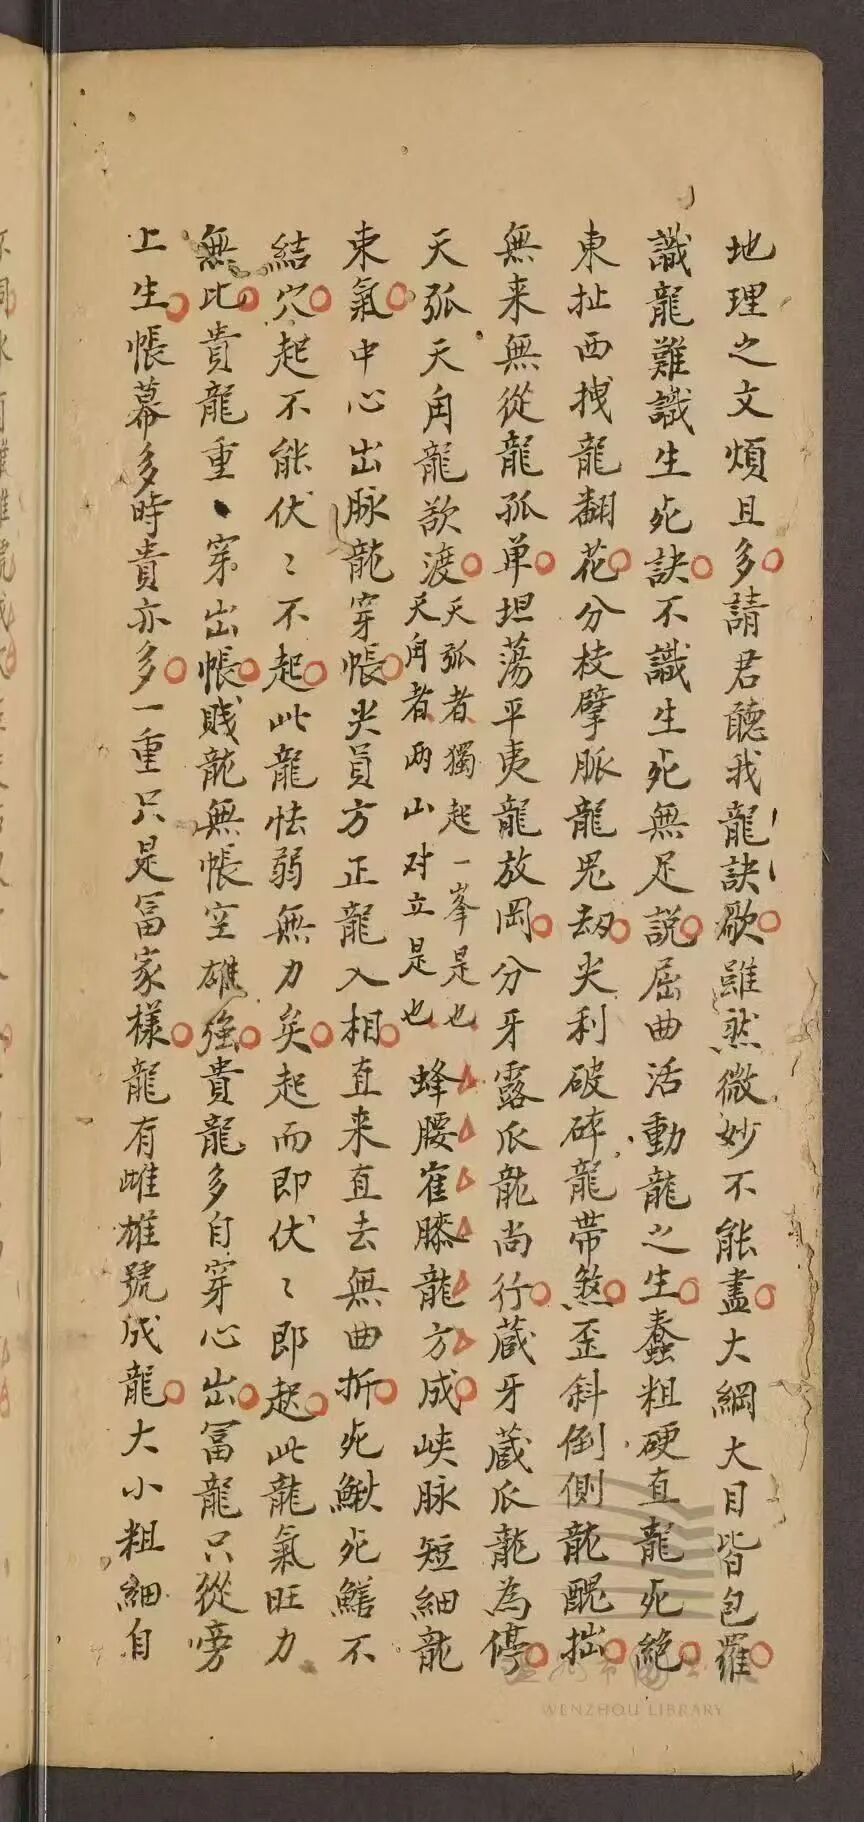 地理之文煩且多請君聽我龍訣歌雖然微妙不能盡大綱大目皆包羅
識龍難識生死訣不識生死無足說屈曲活動龍之生蠢粗硬直龍死絕
東扯西拽龍翻花分枝擘脈龍鬼刼尖利破碎龍帶煞歪斜倒側龍醜拙
無来無從龍孤单坦蕩平夷龍放岡分牙露爪龍尚行蔵牙蔵爪龍為停
天弧天角龍欲渡
天弧者獨起一峯是也
天角者两山对立是也
蜂腰隺膝龍方成峽脉短細龍
束氣中心出脉龍穿帳尖員方正龍入相直来直去無曲折死鰍死鱔不
結穴起不能伏〻不起此龍怯弱無力矣起而即伏〻即起此龍氣旺力
無比貴龍重〻穿出帳賎龍無帳空雄強貴龍多自穿心出冨龍只從旁
上生帳幕多時貴亦多一重只是冨家樣龍有雌雄號成龍大小粗細自
WENZHOU LIBRARY